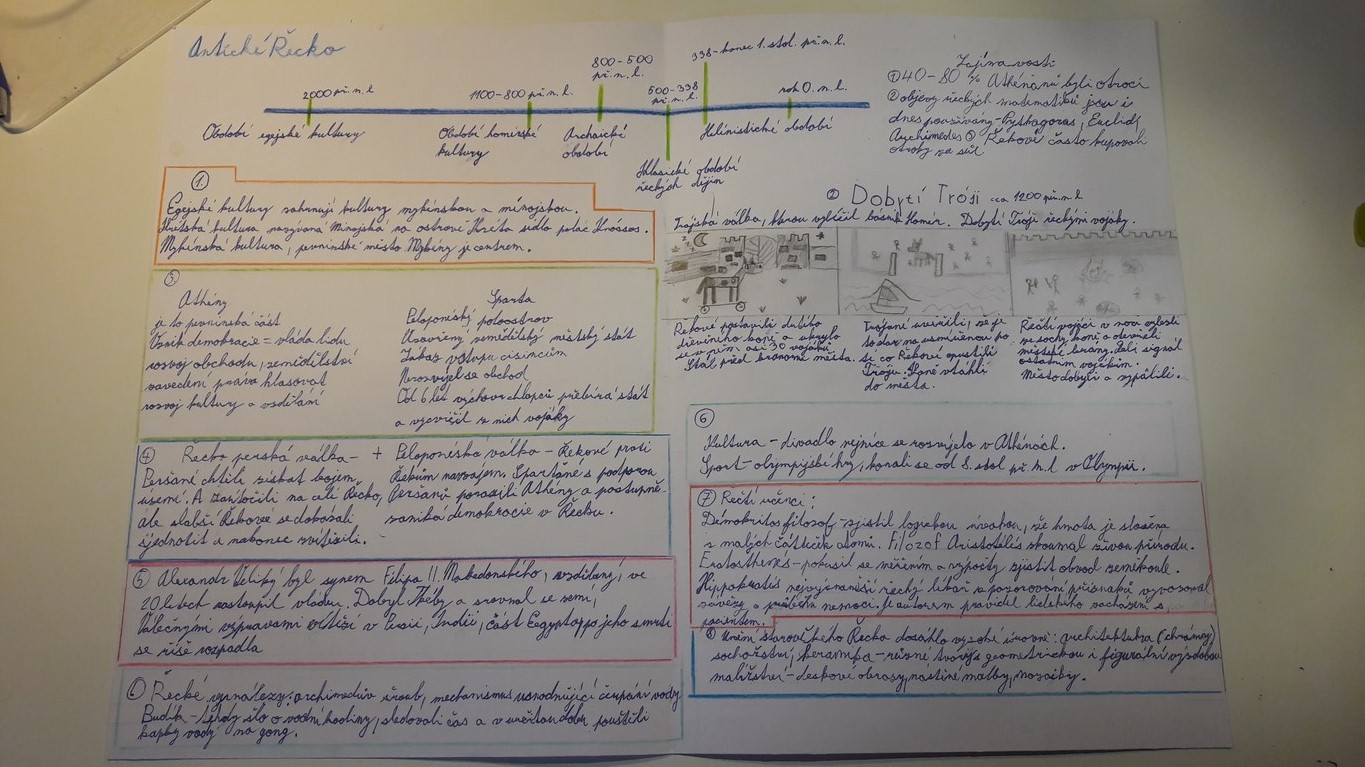 Antické Řecko
2000 př. n. l.
1100-800 př. n. l.
800-500
př. n. l.
500-338
př. n. l.
338-konec 1. stol. př. n. l.
rok 0. n. l.
Období egejské kultury
Období homérské
kultury
Archaické
období
Klasické období
řeckých dějin
Helénistické období
Zajímavosti
① 40-80 % Athéňanů byli otroci
② objevy řeckých matematiků jsou i
dnes používány - Pythagoras, Euclid,
Archimedes ③ Řekové často kupovali
otroky za sůl
1.
Egejské kultury zahrnují kultury mykénskou a mínojskou.
Krétská kultura nazývaná Mínojská na ostrově Kréta sídlo palác Knóssos.
Mykénská kultura, pevninské město Mykény je centrem.
② Dobytí Tróji cca 1200 př. n. l
Trojská válka, kterou vylíčil básník Homér. Dobytí Tróji řeckými vojáky.
Řekové postavili dutého
dřevěného koně a ukrylo
se v něm asi 30 vojáků
Stál před branami města.
Trójané uvěřili, že je
to dar na usmířenou po
té co Řekové opustili
Tróju. Koně vtáhli
do města.
Řečtí vojáci v noci vylezli
ze sochy koně a otevřeli
městské brány. Dali signál
ostatním vojákům.
Město dobyli a vypálili.
③
Athény
je to pevninská část
Vznik demokracie - vláda lidu
rozvoj obchodu, zemědělství
zavedení práva hlasovat
rozvoj kultury a vzdělání
Sparta
Peloponéský poloostrov
Uzavřený zemědělský městský stát
Zákaz vstupu cizincům
Nerozvíjel se obchod
Od 6 let výchovu chlapců přebírá stát
a vycvičil z nich vojáky
④ Řecko perská válka -
Peršané chtěli získat bojem
území. A zaútočili na celé Řecko,
ale slabší Řekové se dokázali
sjednotit a nakonec zvítězili.
+ Peloponéská válka - Řekové proti
Řekům navzájem. Sparťané s podporou
Peršanů porazili Athény a postupně
zaniká demokracie v Řecku.
⑤ Alexandr Veliký byl synem Filipa II. Makedonského, vzdělaný, ve
20 letech nastoupil vládu. Dobyl Théby a srovnal se zemí,
Válečnými výpravami vítězí v Asii, Indii, část Egypta po jeho smrti
se říše rozpadla
⑥
Kultura - divadlo nejvíce se rozvíjelo v Athénách.
Sport - olympijské hry, konali se od 8. stol př. n. l. v Olympii.
⑦ Řečtí učenci:
Démokritos filozof - zjistil logickou úvahou, že hmota je složena
z malých částiček atomů. Filozof Aristotélés zkoumal živou přírodu.
Eratosthenés - pokusil se měřením a výpočty zjistit obvod zeměkoule.
Hippokratés nejvýznamnější řecký lékař z pozorování příznaků vyvozoval
závěry o průběhu nemoci. Je autorem pravidel lidského zacházení s
pacientem.
⑧ Umění starověkého Řecka dosáhlo vysoké úrovně: architektura (chrámy)
sochařství, keramika - různé tvary s geometrickou i figurální výzdobou
malířství - deskové obrazy, nástěné malby, mozaiky.
Řecké vynálezy: archimedův šroub, mechanismus usnadňující čerpání vody
Budík - tehdy šlo o vodní hodiny, sledovali čas a v určitou dobu pouštěli
kapky vody na gong.